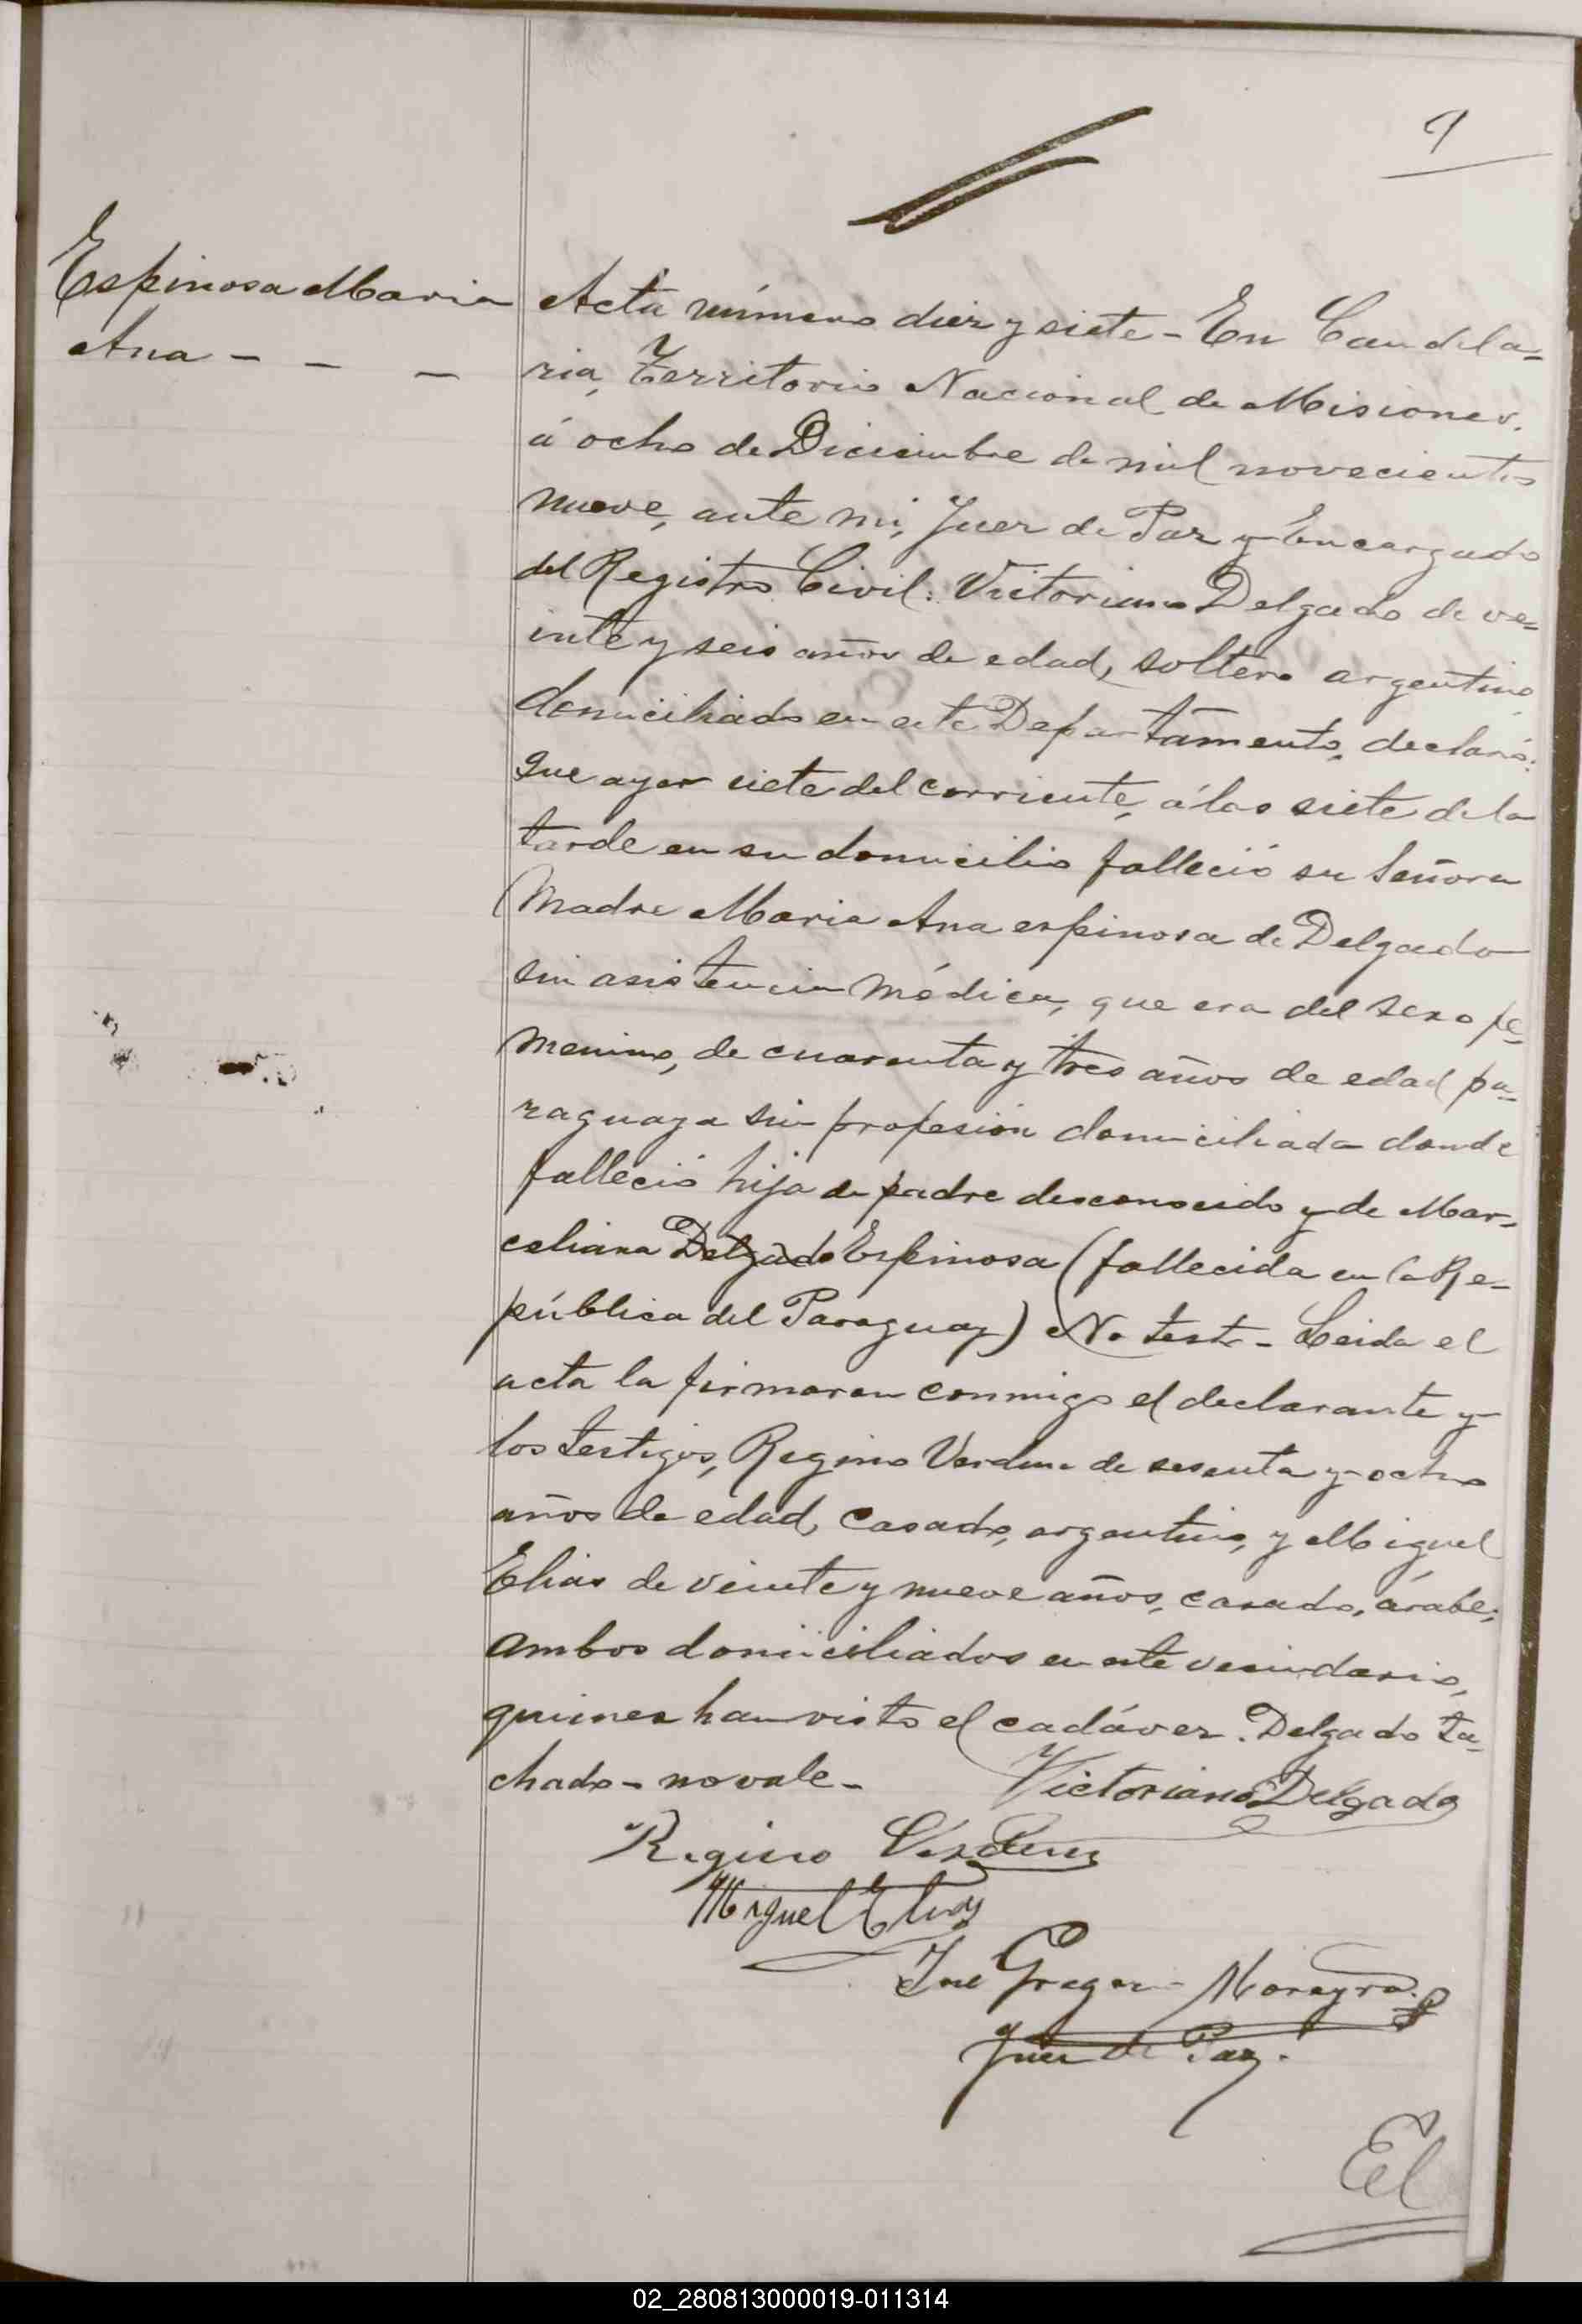 9
Espinosa Maria
Ana - - -
Acta número diez y siete - En Candela=
ria, Territorio Nacional de Misiones,
á ocho de Diciembre de mil novecientos
nueve, ante mi, Juez de Paz y Encargado
del Registro Civil: Victoriano Delgado de ve=
inte y seis años de edad, soltero argentino,
domiciliado en este Departamento, declaró:
que ayer siete del corriente, á las siete de la
tarde en su domicilio falleció su Señora
Madre Maria Ana espinosa de Delgado
sin asistencia médica, que era del sexo fe=
menino, de cuarenta y tres años de edad pa=
raguaya sin profesión domiciliada donde
falleció hija de padre desconocido y de Mar=
celiana Delgado Espinosa (fallecida en la Re-
pública del Paraguay) No testó - Leida el
acta la firmaron conmigo el declarante y
los testigos, Regino Verdun de sesenta y ocho
años de edad, casado, argentino, y Miguel
Elias de veinte y nueve años, casado, árabe;
ambos domiciliados en este vecindario,
quienes han visto el cadáver. Delgado ta=
chado - no vale -
Victoriano Delgado
Regino Verdun
Miguel Elias
José Gregorio Moreyra
Juez de Paz.
El
02_280813000019-011314